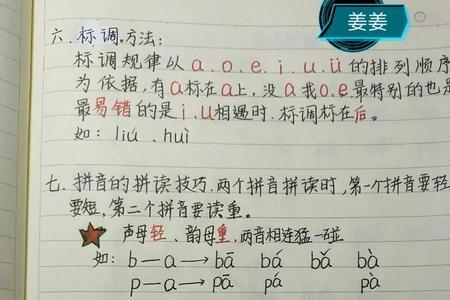 姜姜
六、标调方法:
标调规律以 a、o、e、i、u、ü 的排列顺序
为依据,有a标在a上,没a找o、e最特别的也是
最易错的是i、u相遇时、标调标在后。
如: liú 、huì
七、拼音的拼读技巧、两个拼音拼读时,第一个拼音要轻
要短,第二个拼音要读重。
声母轻、韵母重,两音相连猛一碰
如: b — a → bā bá bǎ bà
p — a → pā pá pà